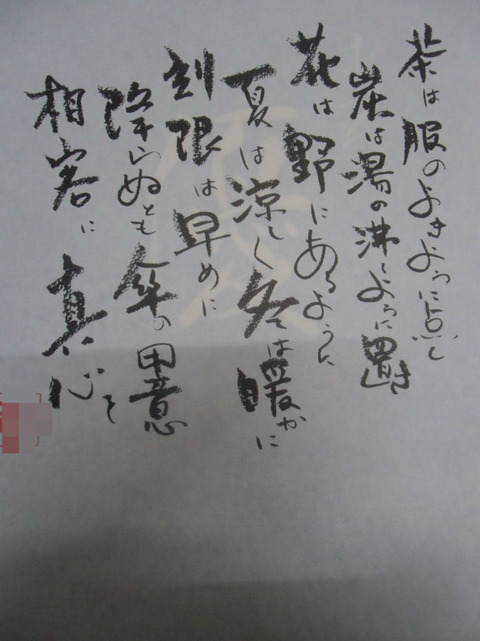 茶は服のよきように点し
炭は湯の沸くように置き
花は野にあるように
夏は涼しく冬は暖かに
刻限は早めに
降らぬとも傘の用意
相客に真心を